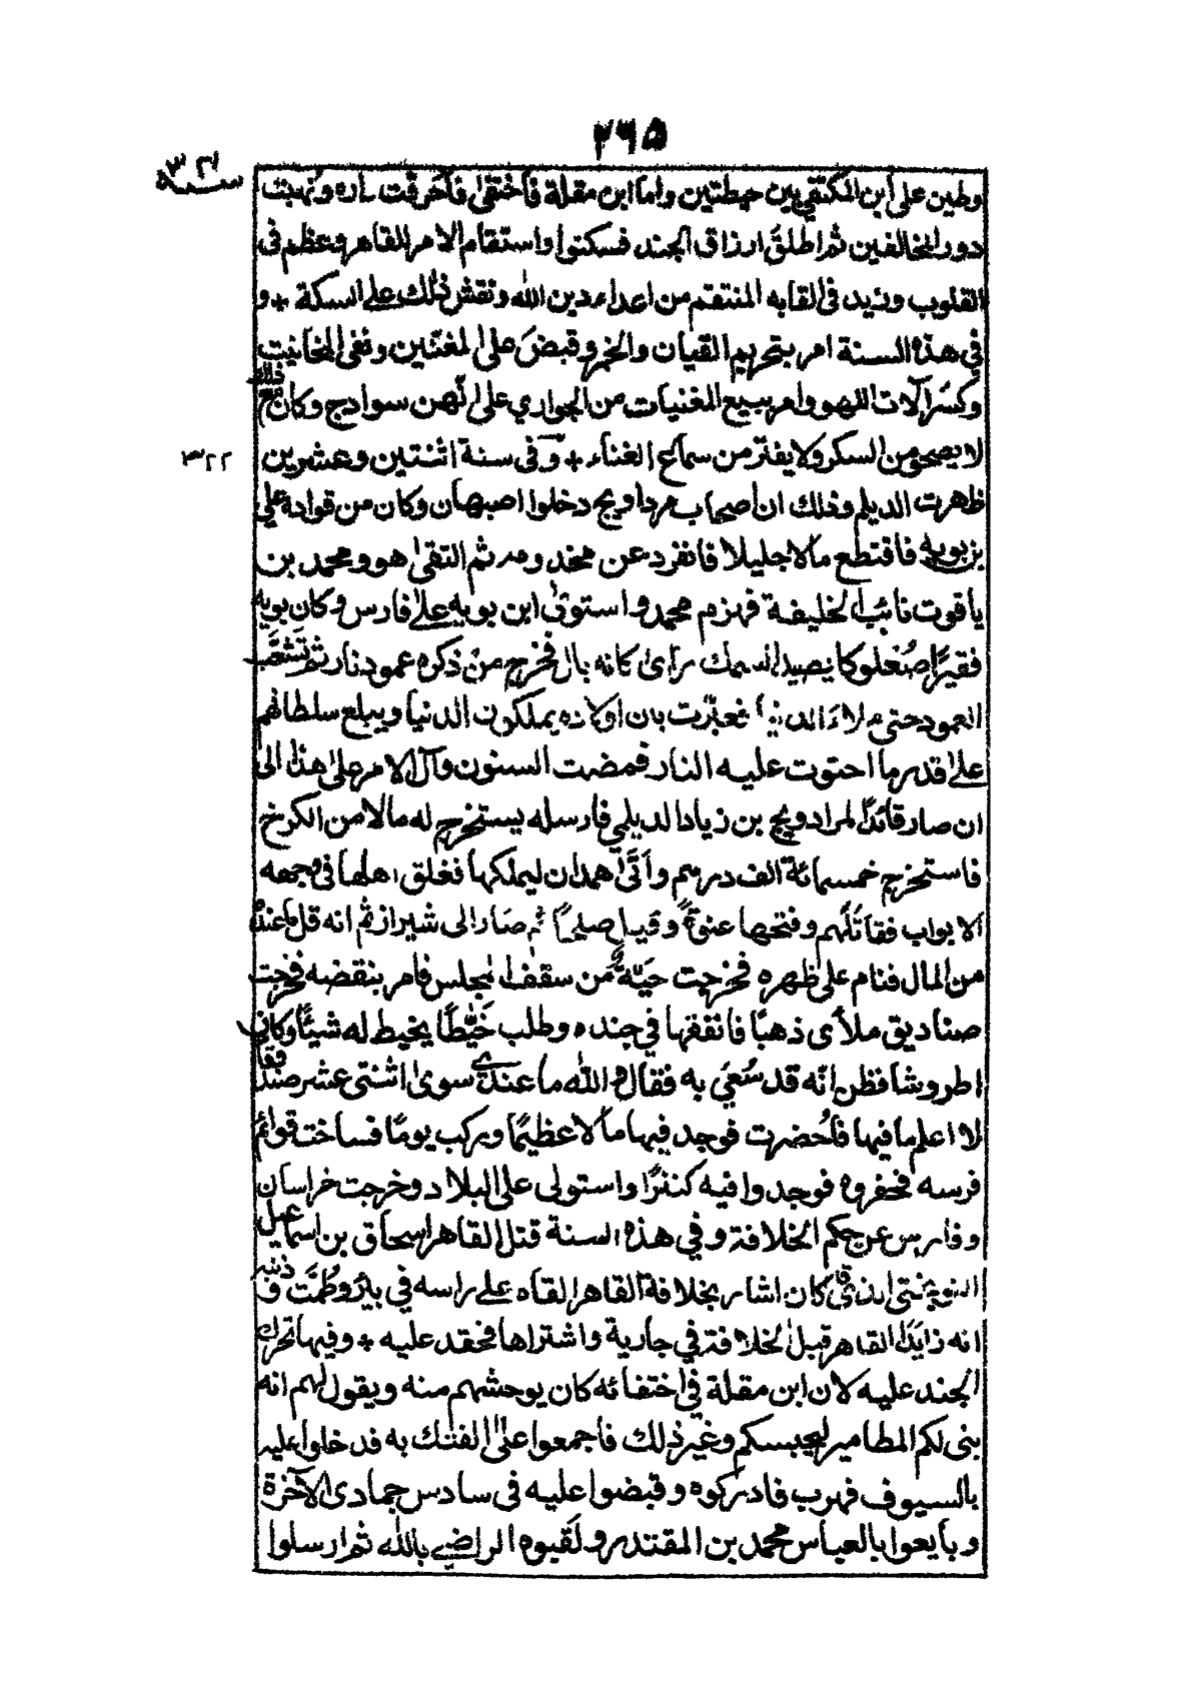 ٢٦٥
سنة ٣٢١
وطين على ابن المكتفي بين حيطتين واما ابن مقلة فاختفى فأحرقت داره ونهبت
دور المخالفين ثم اطلق ارزاق الجند فسكنوا واستقام الامر للقاهر وعظم فى
القلوب وزيد فى القابه المنتقم من اعداء دين الله ونقش ذلك على السكة + و
في هذه السنة امر بتحريم القيان والخمر وقبض على المغنين ونفى المخانيث
وكسر آلات اللهو وامر ببيع المغنيات من الجواري على انهن سواذج وكان مع ذلك
لا يصحو من السكر ولا يفتر من سماع الغناء + وفى سنة اثنتين وعشرين
٣٢٢
ظهرت الديلم وذلك ان اصحاب مرداويج دخلوا اصبهان وكان من قواده على
بن بويه فاقتطع مالا جليلا فانفرد عن مخدومه ثم التقى هو ومحمد بن
ياقوت نائب الخليفة فهزم محمد واستولى ابن بويه على فارس وكان بويه
فقيرا صعلوكا يصيد السمك راى كانه بال فخرج من ذكره عمود نار ثم تشعب
العمود حتى ملاء الدنيا فعبرت بان اولاده يملكون الدنيا ويبلغ سلطانهم
على قدر ما احتوت عليه النار فمضت السنون وآل الامر على هذا الى
ان صار قائدا لمرادويج بن زياد الديلمي فارسله يستخرج له مالا من الكرخ
فاستخرج خمسمائة الف درهم وأتى همدان ليملكها فغلق اهلها فى وجهه
الابواب فقاتلهم وفتحها عنوة وقيل صلحا ثم صار الى شيراز ثم انه قل ما عنده
من المال فنام على ظهره فخرجت حية من سقف المجلس فامر بنقضه فخرجت
صناديق ملأى ذهبا فانفقها في جنده وطلب خيطا يخيط له شيئا وكان
اطروشا فظن انه قد سعي به فقال والله ما عندي سوى اثنتى عشر صندوقا
لا اعلم ما فيها فأحضرت فوجد فيها مالا عظيما وركب يوما فساخت قوائم
فرسه فحفروه فوجدوا فيه كنزا واستولى على البلاد وخرجت خراسان
وفارس عن حكم الخلافة وفي هذه السنة قتل القاهر اسحاق بن اسماعيل
النوبختى الذي كان اشار بخلافة القاهر القاه على راسه في بئر وطمت وذنبه
انه زايد القاهر قبل الخلافة في جارية واشتراها فحقد عليه + وفيها تحرك
الجند عليه لان ابن مقلة في اختفائه كان يوحشهم منه ويقول لهم انه
بنى لكم المطامير ليحبسكم وغير ذلك فاجمعوا على الفتك به فدخلوا عليه
بالسيوف فهرب فادركوه وقبضوا عليه فى سادس جمادى الآخرة
وبايعوا بالعباس محمد بن المقتدر ولقبوه الراضي بالله ثم ارسلوا